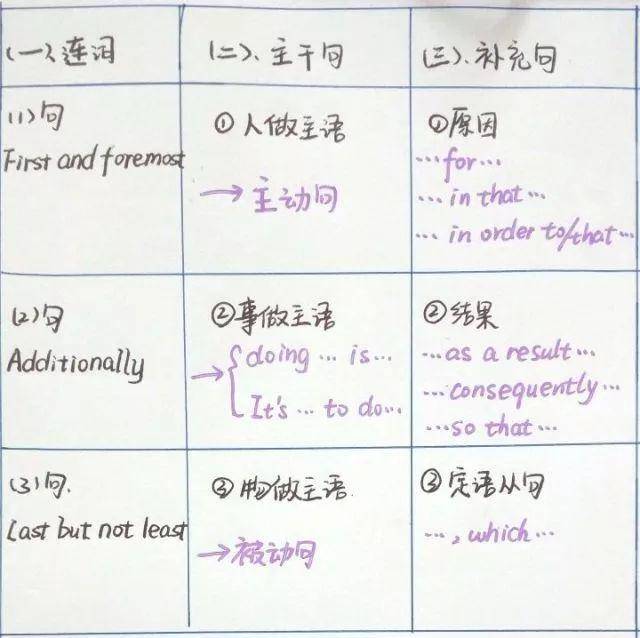 (一)、连词
(二)、主干句
(三)、补充句
(1)句
First and foremost
①人做主语
→主动句
①原因
…for…
…in that…
…in order to/that…
(2)句
Additionally
②事做主语
→{doing … is…
It's … to do…
②结果
…as a result…
…consequently…
…so that…
(3)句.
Last but not least
③物做主语.
→被动句
③定语从句
…, which…